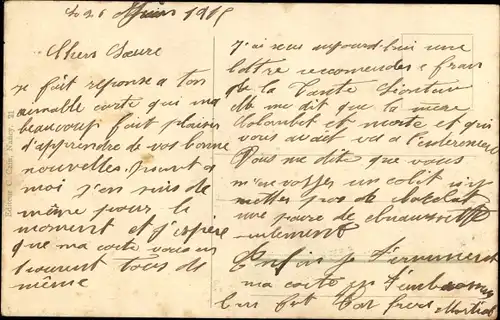 Le 26 Juin 1915
Chere Soeure
Je fait reponse a ton
aimable carte qui ma
beaucoup fait plaisir
d'apprendre de vos bonne
nouvelles. Quant a
moi j'en suis de
même pour le
moment et j'espère
que ma carte vous en
trouvent tous de
même
J'ai reçus aujourd'hui une
lettre recommendee
de la Tante
de me dit que la mère
Colombet et morte et qui
vous avait va a l'enterement
Vous me dite que vous
m'envoyer un colit
mettes pas de chocolat
une paire de chaussette
sulement
Enfin je termine
ma carte en t'embrassant
ton frere Martial
Editeur C. Cuin, Nancy. 21